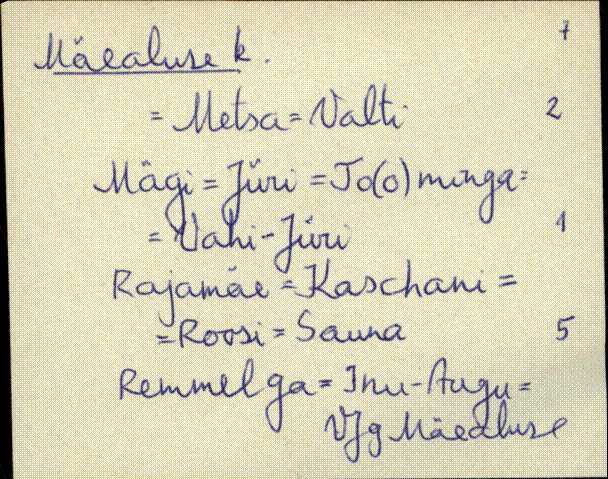 Mäealuse k. 7
= Metsa = Valti 2
Mägi = Jüri = Jo(o)minga =
= Vahi-Jüri 1
Rajamäe = Kaschani =
= Roosi = Sauna 5
Remmelga = Inu-Augu =
VJg Mäealuse